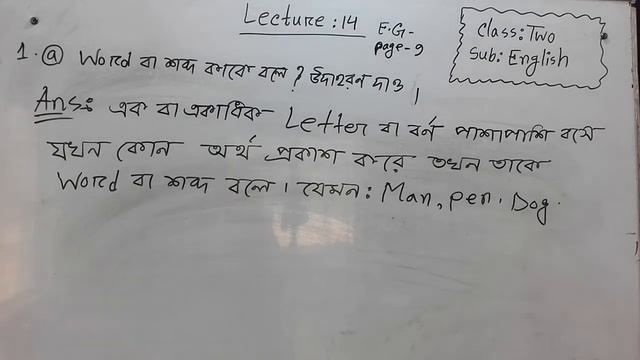 Lecture : 14
E.G-
page-9
Class: Two
Sub: English
1. ⓐ Word বা শব্দ কাকে বলে ? উদাহরন দাও ।
Ans: এক বা একাধিক Letter বা বর্ন পাশাপাশি বসে
যখন কোন অর্থ প্রকাশ করে তখন তাকে
Word বা শব্দ বলে । যেমন : Man, pen. Dog.